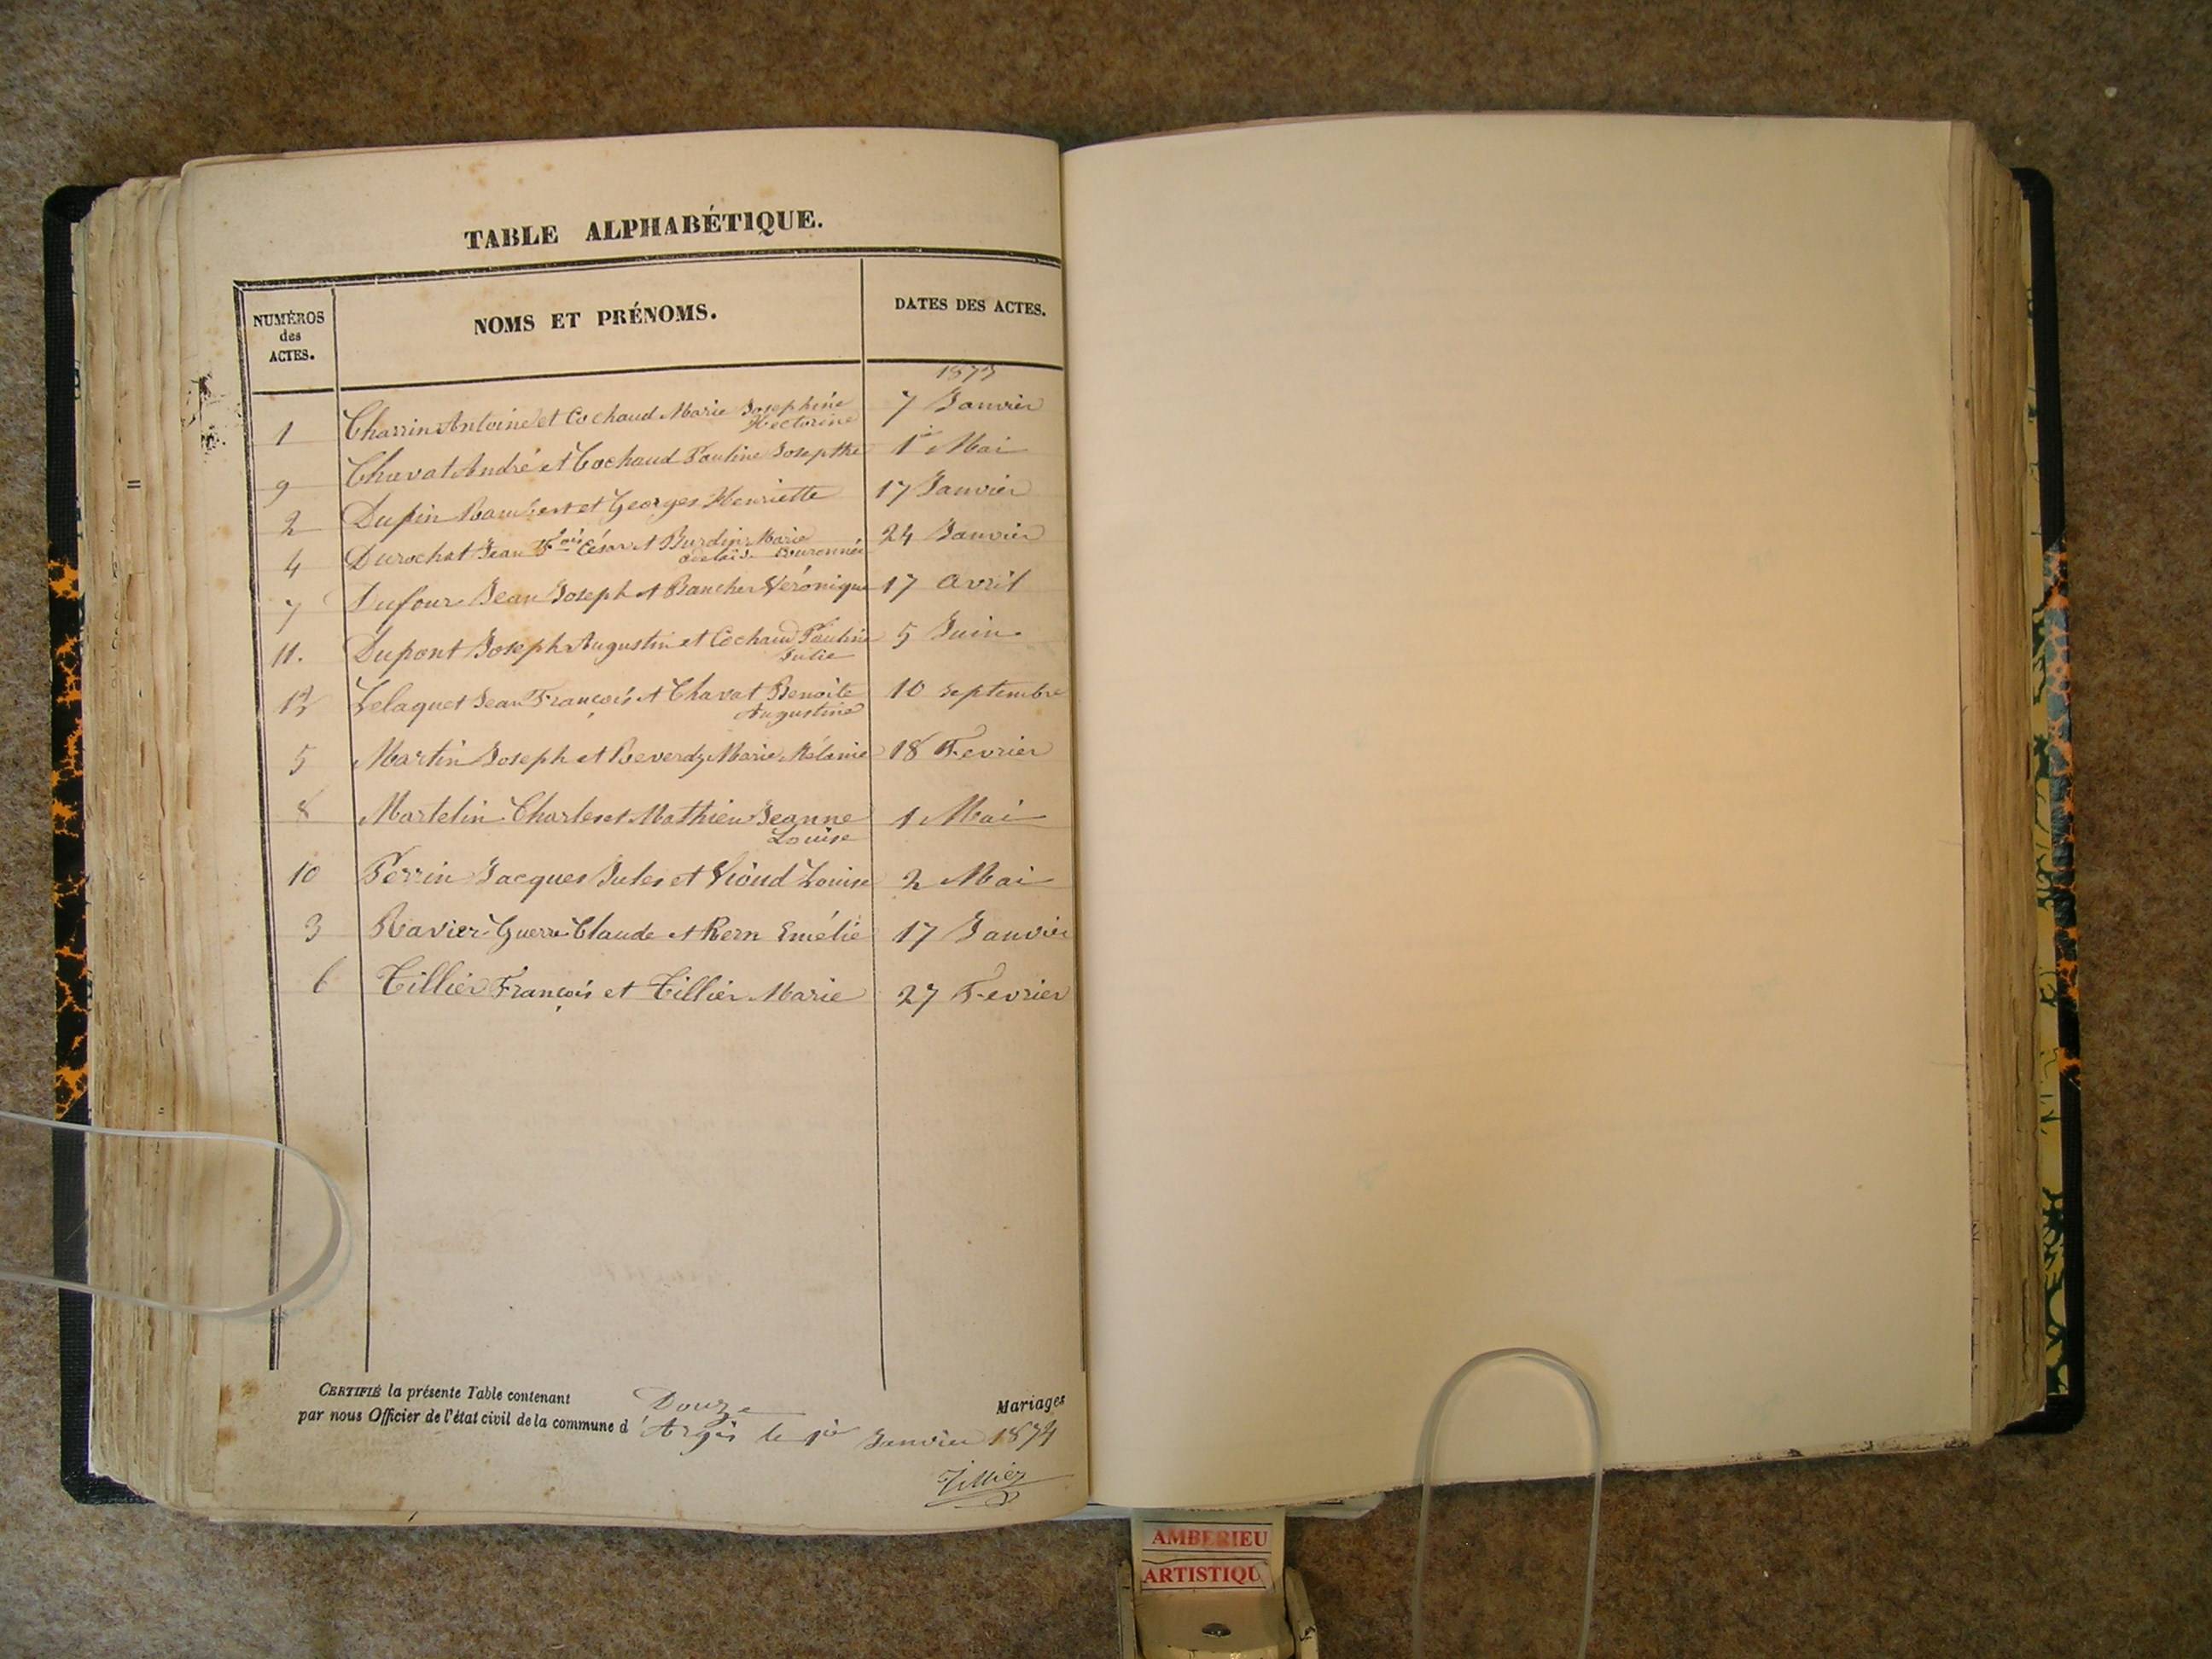 TABLE ALPHABÉTIQUE.
NUMÉROS des ACTES.
NOMS ET PRÉNOMS.
DATES DES ACTES.
1873
1 Charrin Antoine et Cochaud Marie Josephine Hectorine 7 Janvier
9 Chavat André et Cochaud Pauline Josepthe 1er Mai
2 Dupin Rambert et Georges Henriette 17 Janvier
4 Durochat Jean César et Burdin Marie 24 Janvier
7 Dufour Jean Joseph et Bancher Véronique 17 avril
11. Dupont Joseph Augustin et Cochaud Pauline Julie 5 Juin
12 Lelaquet Jean François et Chavat Benoite Augustine 10 septembre
5 Martin Joseph et Reverdy Marie Mélanie 18 Fevrier
8 Martelin Charles et Mathieu Jeanne Louise 1 Mai
10 Perrin Jacques Jules et Vioud Louise 2 Mai
3 Ravier-Guerre Claude et Kern Emélie 17 Janvier
6 Tillier François et Tillier Marie 27 Fevrier
CERTIFIÉ la présente Table contenant Douze Mariages
par nous Officier de l'état civil de la commune d'Argis le 1er Janvier 1874
Tillier
AMBERIEU
ARTISTIQU